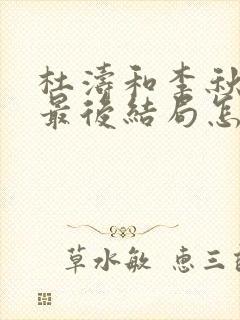 杜濤和李秋
最後結局怎
草水敏 惠三